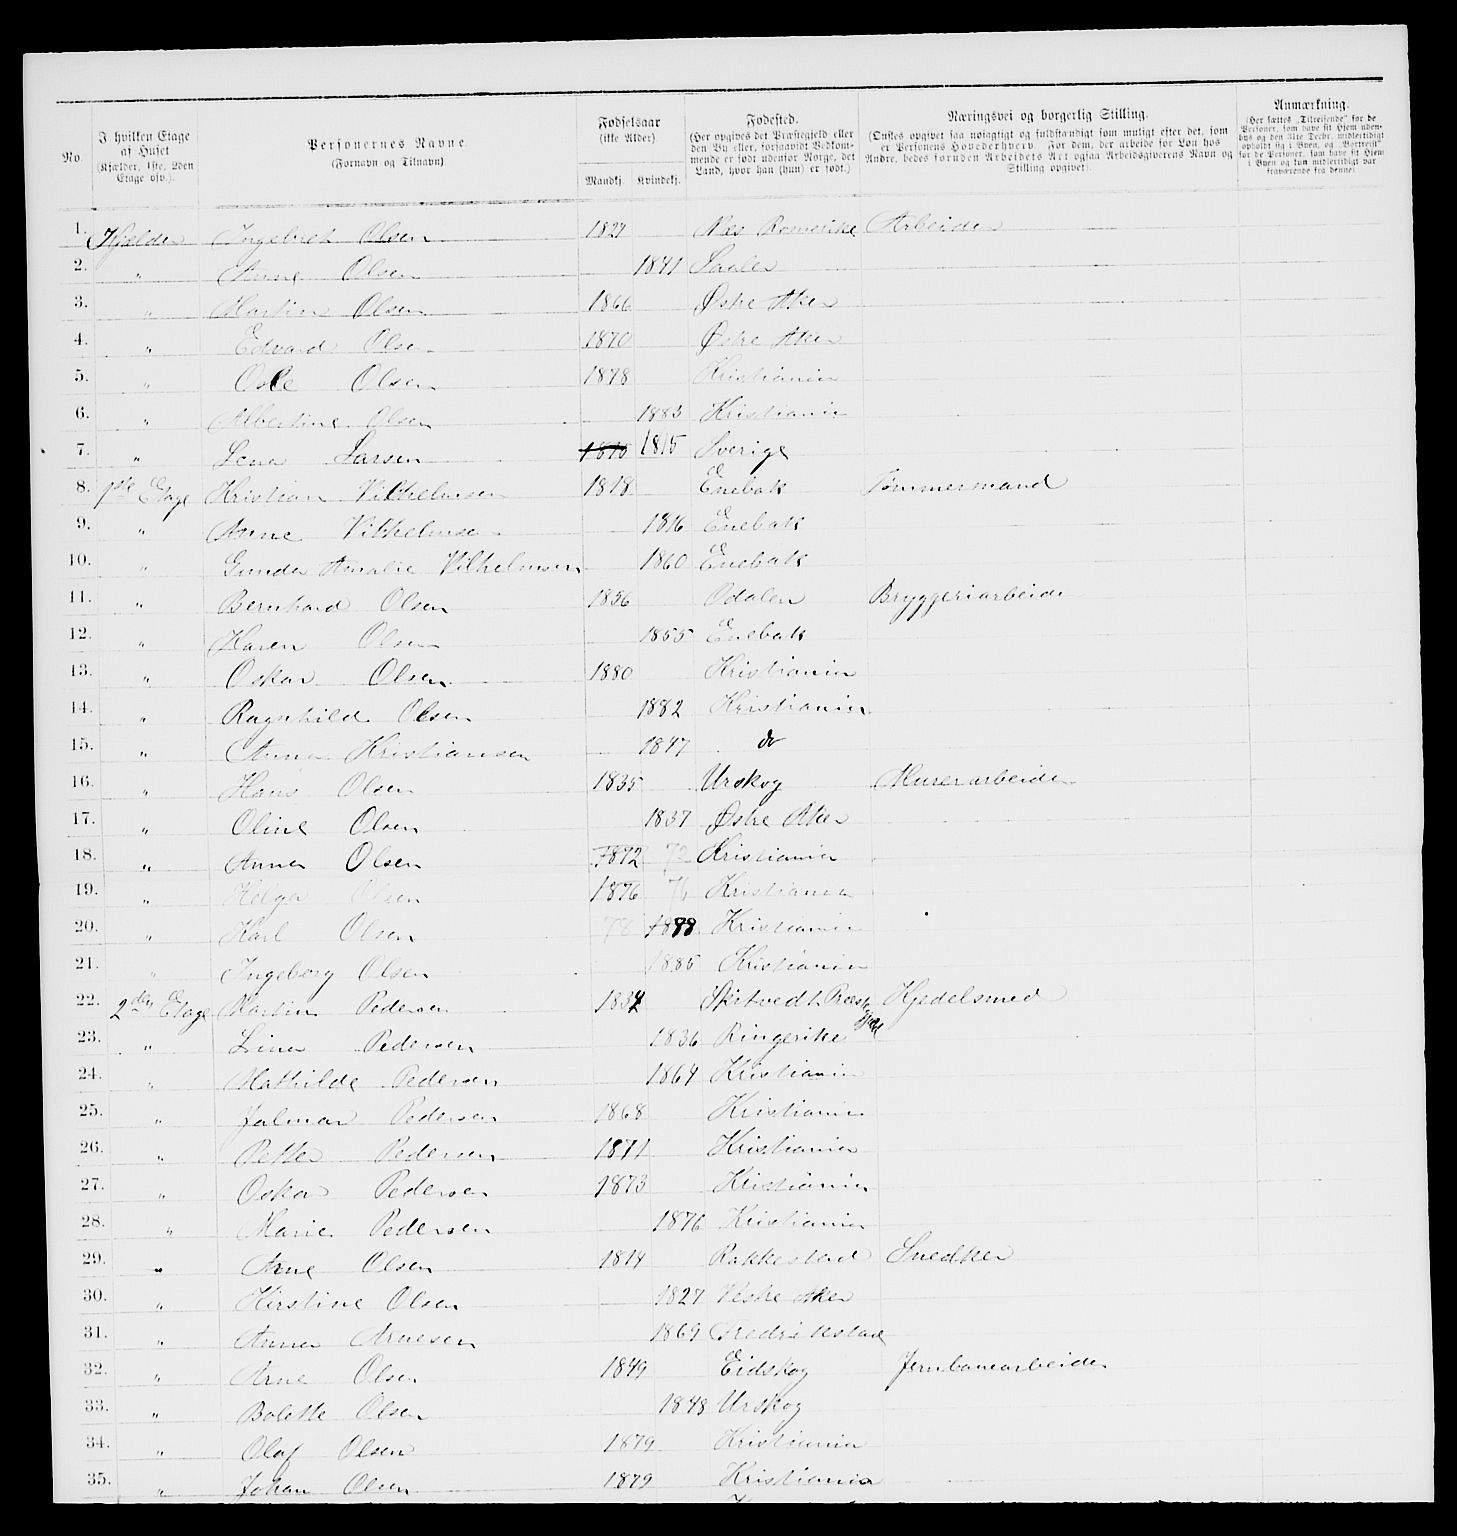 No.
I hvilken Etage af Huset (Kjælder, 1ste, 2den Etage osv.).
Personernes Navne. (Fornavn og Tilnavn)
Fødselsaar (ikke Alder) Mandkj. Kvindekj.
Fødested. (Her opgives det Præstegjeld eller den By eller, forsaavidt Vedkommende er født udenfor Norge, det Land, hvor han (hun) er født.)
Næringsvei og borgerlig Stilling. (Ønskes opgivet saa nøiagtigt og fuldstændigt som muligt efter det, som er Personens Hovederhverv. For dem, der arbeide for Løn hos Andre, bedes foruden Arbeidets Art ogsaa Arbeidsgiverens Navn og Stilling opgivet).
Anmærkning. (Her sættes „Tilreisende" for de Personer, som have sit Hjem udenbys og den 31te Decbr. midlertidigt opholdt sig i Byen, og „Bortreist" for de Personer, som have sit Hjem i Byen og kun midlertidigt var fraværende fra denne)
1. Kjælder Ingebret Olsen 1827 Næs Romerike Arbeider
2. „ Anne Olsen 1841 Saaler
3. „ Martin Olsen 1866 Østre Aker
4. „ Edvard Olsen 1870 Østre Aker
5. „ Ole Olsen 1878 Kristiania
6. „ Albertine Olsen 1883 Kristiania
7. „ Lena Larsen 1815 1815 Sverige
8. 1ste Etage Kristian Vilhelmsen 1818 Enebak Tømmermand
9. „ Anne Vilhelmsen 1816 Enebak
10. „ Gunda Amalie Vilhelmsen 1860 Enebak
11. „ Bernhard Olsen 1856 Odalen Bryggeriarbeider
12. „ Karen Olsen 1855 Enebak
13. „ Oskar Olsen 1880 Kristiania
14. „ Ragnhild Olsen 1882 Kristiania
15. „ Anna Kristiansen 1847 do
16. „ Hans Olsen 1835 Urskog Murerarbeider
17. „ Oline Olsen 1837 Østre Aker
18. „ Anna Olsen 1872 72 Kristiania
19. „ Helga Olsen 1876 76 Kristiania
20. „ Karl Olsen 78 1878 Kristiania
21. „ Ingeborg Olsen 1885 Kristiania
22. 2den Etage Martin Pedersen 1834 Skitvedt Præstegjeld Kjedelsmed
23. „ Lina Pedersen 1836 Ringerike
24. „ Mathilde Pedersen 1864 Kristiania
25. „ Jalmar Pedersen 1868 Kristiania
26. „ Petter Pedersen 1871 Kristiania
27. „ Oskar Pedersen 1873 Kristiania
28. „ Marie Pedersen 1876 Kristiania
29. „ Arne Olsen 1814 Rakkestad Snedker
30. „ Kirstine Olsen 1827 Vestre Aker
31. „ Anna Arnesen 1869 Fredrikstad
32. „ Arne Olsen 1849 Eidskog Jernbanearbeider
33. „ Bolette Olsen 1848 Urskog
34. „ Olaf Olsen 1879 Kristiania
35. „ Johan Olsen 1879 Kristiania